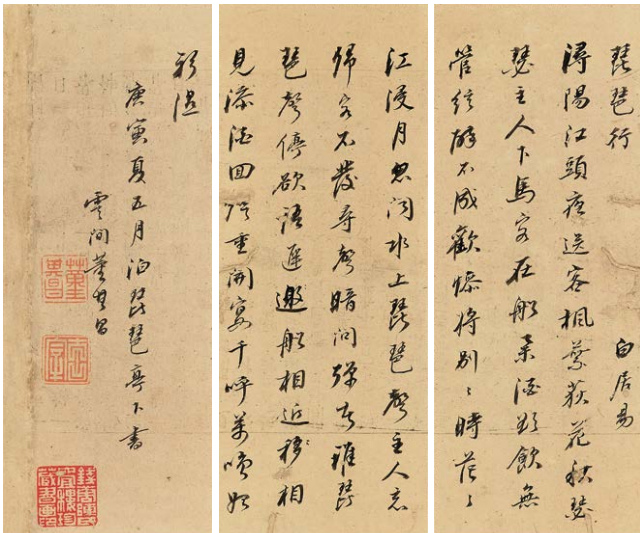 琵琶行 白居易
潯陽江頭夜送客楓葉荻花秋瑟
瑟主人下馬客在船舉酒欲飲無
管絃醉不成歡慘將別〻時茫〻
江浸月忽聞水上琵琶聲主人忘
歸客不發尋聲暗問彈者誰琵
琶聲停欲語遲邀船相近移相
見添酒回燈重開宴千呼萬喚始
衫濕
庚寅夏五月泊琵琶亭下書
雲間董其昌
董其昌